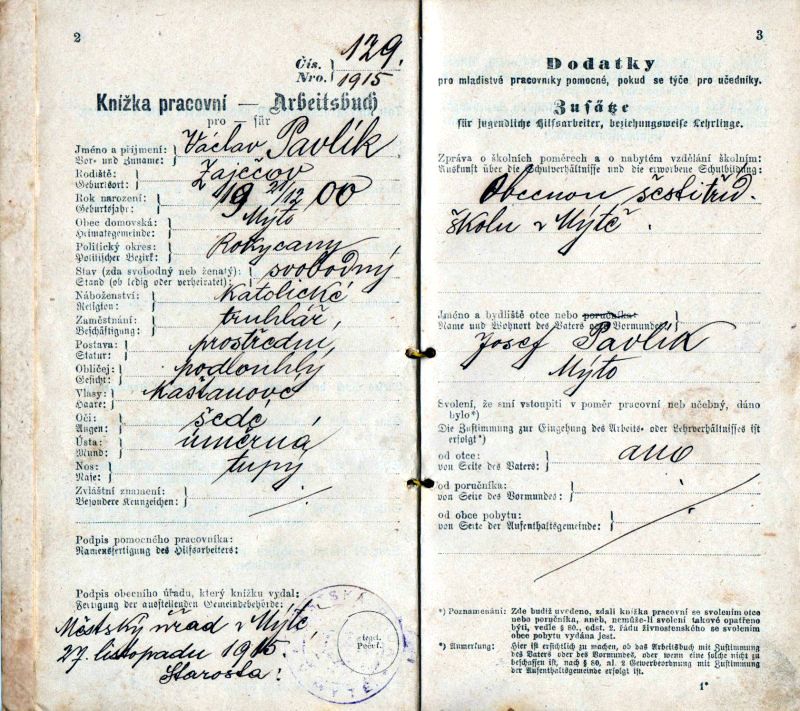 2
Čís.
Nro.
129.
1915
Knížka pracovní — Arbeitsbuch
pro — für
Jméno a příjmení:
Vor- und Zuname:
Václav Pavlík
Rodiště:
Geburtsort:
Zaječov
Rok narození:
Geburtsjahr:
19 21/12 00
Obec domovská:
Heimatsgemeinde:
Mýto
Politický okres:
Politischer Bezirk:
Rokycany
Stav (zda svobodný neb ženatý):
Stand (ob ledig oder verheiratet):
svobodný
Náboženství:
Religion:
katolické
Zaměstnání:
Beschäftigung:
truhlář,
Postava:
Statur:
prostřední,
Obličej:
Gesicht:
podlouhlý
Vlasy:
Haare:
Kaštanové
Oči:
Augen:
šedé,
Ústa:
Mund:
úměrná
Nos:
Nase:
tupý
Zvláštní znamení:
Besondere Kennzeichen:
Podpis pomocného pracovníka:
Namensfertigung des Hilfsarbeiters:
Podpis obecního úřadu, který knížku vydal:
Fertigung der ausstellenden Gemeindebehörde:
Městský úřad v Mýtě,
27. listopadu 1915.
Starosta:
3
Dodatky
pro mladistvé pracovníky pomocné, pokud se týče pro učedníky.
Zusätze
für jugendliche Hilfsarbeiter, beziehungsweise Lehrlinge.
Zpráva o školních poměrech a o nabytém vzdělání školním:
Auskunft über die Schulverhältnisse und die erworbene Schulbildung:
Obecnou šestitříd.
školu v Mýtě.
Jméno a bydliště otce nebo poručníka:
Name und Wohnort des Vaters oder Vormundes:
Josef Pavlík
Mýto
Svolení, že smí vstoupiti v poměr pracovní neb učebný, dáno
bylo*)
Die Zustimmung zur Eingehung des Arbeits- oder Lehrverhältnisses ist
erfolgt*)
od otce:
von Seite des Vaters:
ano
od poručníka:
von Seite des Vormundes:
od obce pobytu:
von Seite der Aufenthaltsgemeinde:
*) Poznamenání: Zde budiž uvedeno, zdali knížka pracovní se svolením otce
nebo poručníka, aneb, nemůže-li svolení takové opatřeno
býti, vedle § 80., odst. 2. řádu živnostenského se svolením
obce pobytu vydána jest.
*) Anmerkung: Hier ist ersichtlich zu machen, ob das Arbeitsbuch mit Zustimmung
des Vaters oder des Vormundes, oder wenn eine solche nicht zu
beschaffen ist, nach § 80, al. 2 Gewerbeordnung mit Zustimmung
der Aufenthaltsgemeinde erfolgt ist.
1*